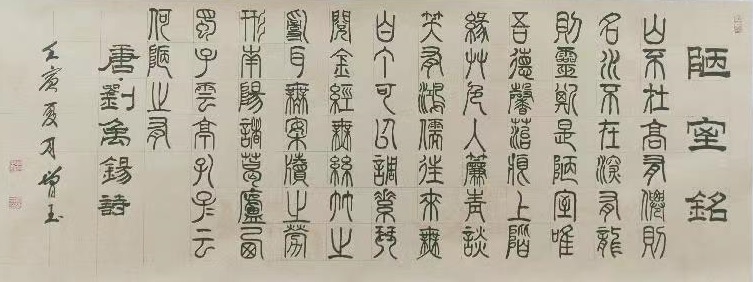 陋室銘
山不在高有僊則
名水不在深有龍
則靈斯是陋室唯
吾德馨苔痕上階
綠艸色入簾青談
笑有鴻儒往來無
白丁可以調素琴
閱金經無絲竹之
亂耳無案牘之勞
形南陽諸葛廬西
蜀子雲亭孔子云
何陋之有
唐劉禹錫詩
壬寅夏月